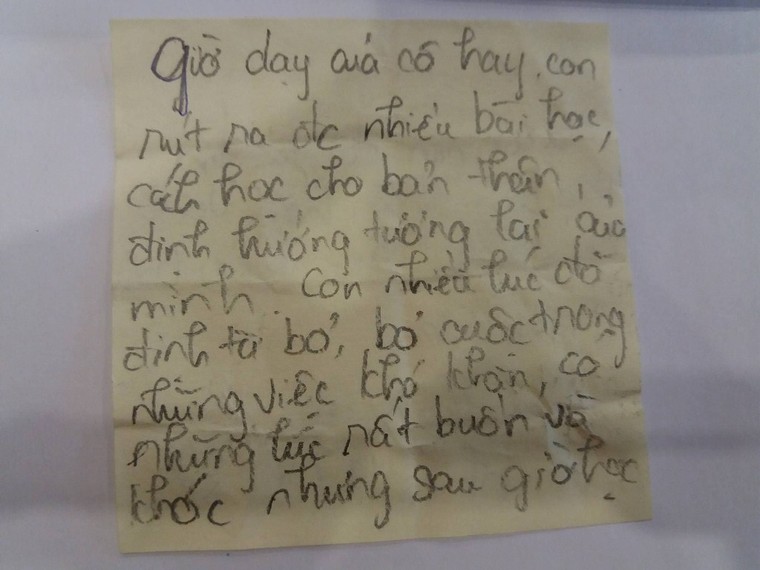 Giờ dạy của cô hay, con
rút ra đc nhiều bài học,
cách học cho bản thân,
định hướng tương lai của
mình. Con nhiều lúc đã
định từ bỏ, bỏ cuộc trong
những việc khó khăn, có
những lúc rất buồn và
khóc nhưng sau giờ học